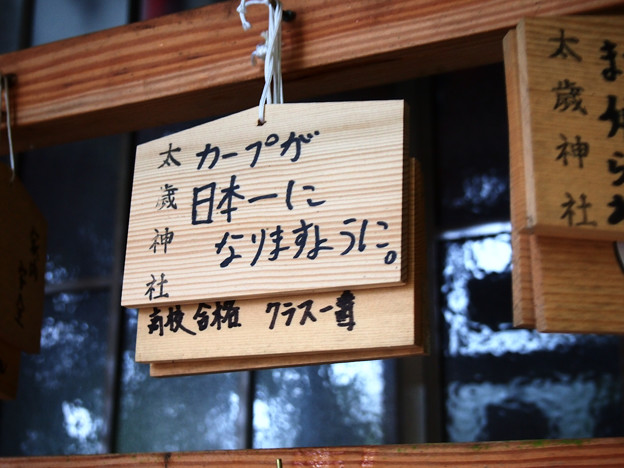 太歳神社
カープが
日本一に
なりますように。
高校合格 クラス一番
太歳神社